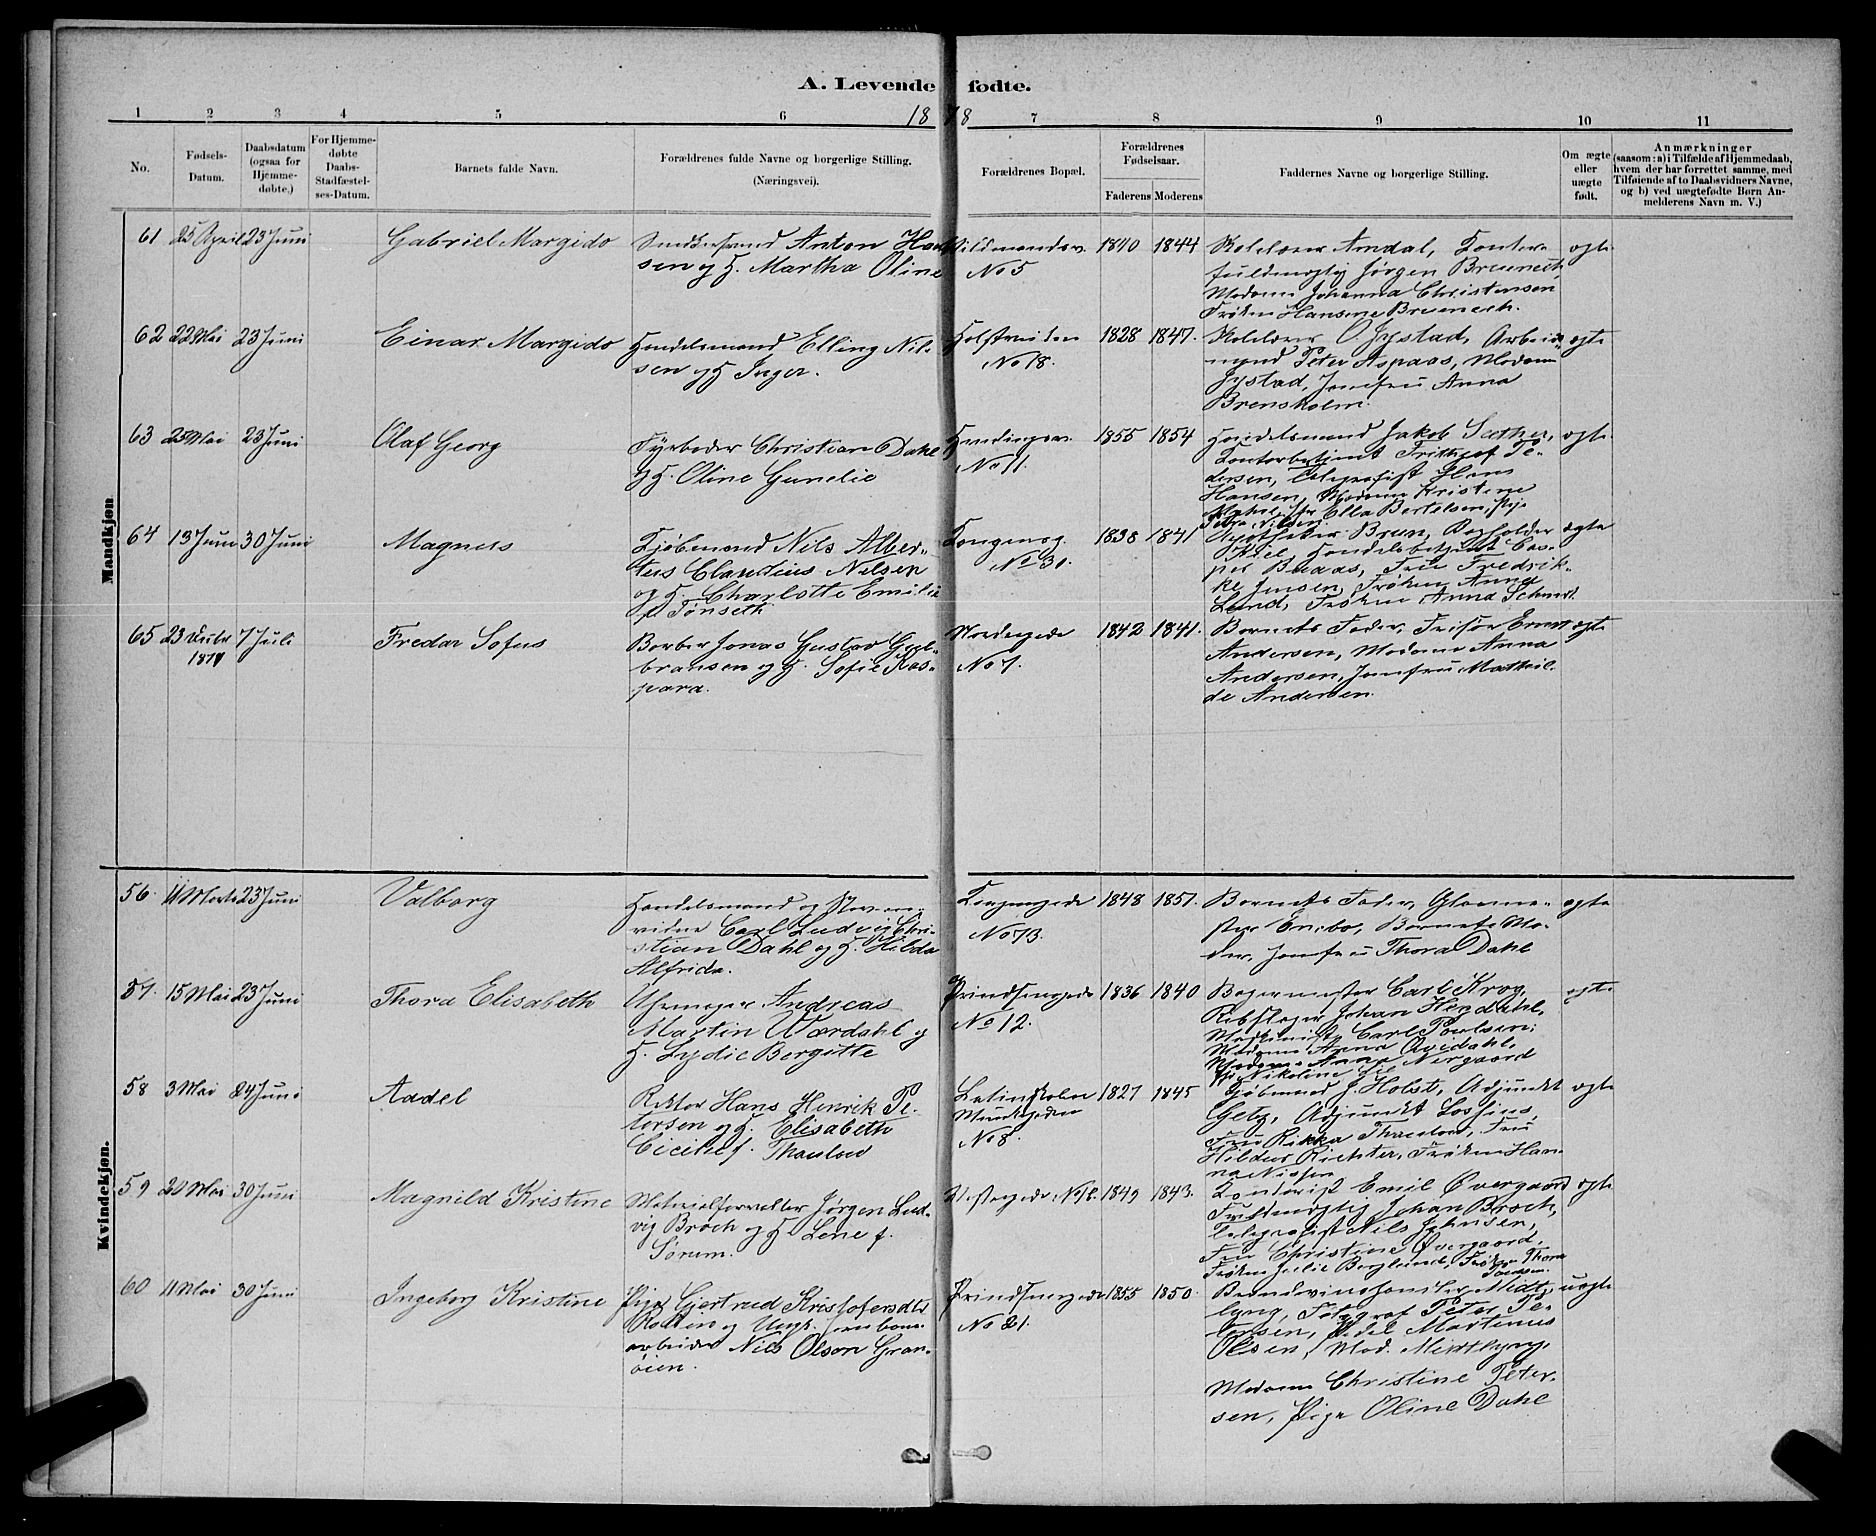 A. Levende fødte.
1878
1 2 3 4 5 6 7 8 9 10 11
No.
Fødsels-Datum.
Daabsdatum (ogsaa for Hjemme-døbte.)
For Hjemme-døbte Daabs-Stadfæstel-ses-Datum.
Barnets fulde Navn.
Forældrenes fulde Navne og borgerlige Stilling.
(Næringsvei).
Forældrenes Bopæl.
Forældrenes Fødselsaar.
Faderens Moderens
Faddernes Navne og borgerlige Stilling.
Om ægte eller uægte født.
Anmærkninger
(saasom: a) i Tilfælde af Hjemmedaab,
hvem der har forrettet samme, med
Tilføiende af to Daabsvidners Navne,
og b) ved uægtefødte Børn An-
melderens Navn m. V.)
Mandkjøn
61 25 April 23 Juni
Gabriel Margido
Anton Han
sen og H. Martha Oline
No 5
1840 1844
Arndal,
Jørgen Breunech,
Madame Johanna Christensen
Frøken Hansine Breunech.
ægte
62 22 Mai 23 Juni
Einar Margido
Handelsmand Elling Nil
sen og H Inger.
No 18.
1828 1847.
O. Jystad, Arbeids
mand Peter Aspaas, Madam
Jystad, Jomfru Anna
Brensholm.
ægte
63 25 Mai 23 Juni
Olaf Georg
Fyrbøder Christian Dahl
og H. Oline Gunelie
No 11.
1855 1854
Handelsmand Jakob Sæther,
Kontorbetjent Frithjof Pe-
dersen, Telegrafist Hans
Hansen, Madame Kristine
Ella Bertelsen, Pige
Nilsen.
ægte
64 13 Juni 30 Juni
Magnus
Kjøbmand Nils Alber-
tus Claudius Nilsen
og H. Charlotte Emilie
f. Tønseth
Kongensg.
No 30.
1838 1841
Apotheker Brun, Bogholder
Kiel, Handelsbetjent Cas-
per Buaas, Fru Fredrik-
ke Jensen, Frøken Anna
Lund, Frøken Anna Schmidt.
ægte
65 23 7 Juli
1877
Fredar Sofus
Barber Jonas Gustav Gul-
bransen og H. Sofie Kas-
para.
Nordregade
No 7.
1842 1841.
Barnets Fader, Frisør Ernst
Andersen, Madame Anna
Andersen, Jomfru Mathil
de Andersen.
ægte
Kvindekjøn.
56. 11 Marts 23 Juni
Valborg
Handelsmand og
Carl Ludvig Chri-
stian Dahl og H. Hilda
Alfrida.
Kongensgade
No 73.
1848 1851.
Barnets Fader, Glasme-
ster Enebo, Barnets Mo-
der, Jomfru Thora Dahl
ægte
57. 15 Mai 23 Juni
Thora Elisabeth
Uhrmager Andreas
Martin Værdahl og
H. Lydie Bergitte
Prindsensgade
No 12.
1836 1840
Bagermester Carl Krog,
Rebslager Johan Hegdahl,
Maskinist Carl Poulsen,
Madame Anna Qvidahl,
Madame Anna Nergaard
Nikoline
ægte
58 3 Mai 24 Juni
Aadel
Rektor Hans Henrik Pe-
tersen og H. Elisabeth
Cicilie f. Thaulow
Latinskolen
Munkgaden
No 8.
1827 1845
Kjøbmand J. Holst, Adjunkt
Getz, Adjunkt Lossius,
Fru Rikka Thaulow, Fru
Hildur Richter, Frøken Han-
na Nissen
ægte
59 20 Mai 30 Juni
Magnild Kristine
Materialforvalter Jørgen Lud-
vig Broch og H Lene f.
Sørum.
1849 1843.
Kontorist Emil Øvergaard
Fuldmægtig Johan Broch,
Telegrafist Nils Johnsen,
Fru Christine Øvergaard,
Frøken Julie Berglund, Frøken Thora
ægte
60 11 Mai 30 Juni
Ingeborg Kristine
Pige Gjertrud Kristofersdtr
og Ungk. Jernbane
arbeider Nils Olson Gran-
øien.
Prindsensgade
No 21.
1855 1850.
Brændevinshandler Midt-
lyng, Fotograf Peter Pe-
tersen, Pedel Martinus
Olsen, Mad. Midtlyng,
Madame Christine Peter-
sen, Pige Oline Dahl
uægte